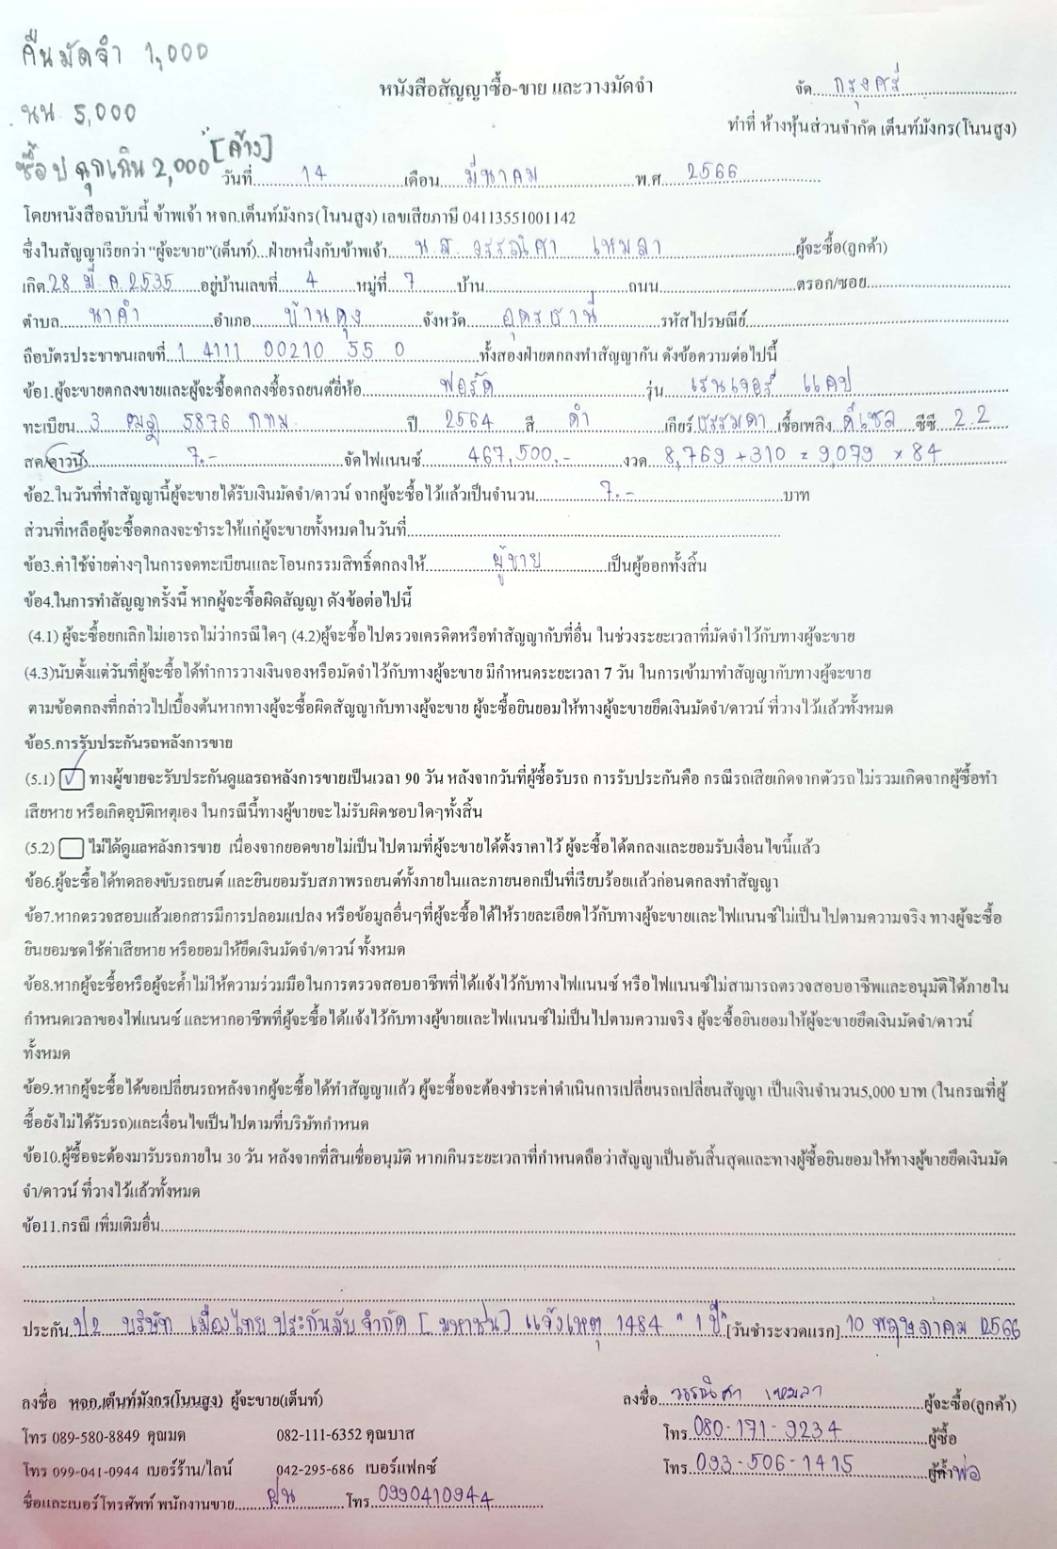 คืนมัดจำ 1,000
นน 5,000
ซื้อป ฉุกเฉิน 2,000 [ค้าง]
หนังสือสัญญาซื้อ-ขาย และวางมัดจำ
จัด กรุงศรี
ทำที่ ห้างหุ้นส่วนจำกัด เต็นท์มังกร(โนนสูง)
วันที่ 14 เดือน มีนาคม พ.ศ. 2566
โดยหนังสือฉบับนี้ ข้าพเจ้า หจก.เต็นท์มังกร(โนนสูง) เลขเสียภาษี 04113551001142
ซึ่งในสัญญาเรียกว่า "ผู้จะขาย"(เต็นท์)...ฝ่ายหนึ่งกับข้าพเจ้า น.ส วรรณิศา เหมลา ผู้จะซื้อ(ลูกค้า)
เกิด 28 มี.ค 2535 อยู่บ้านเลขที่ 4 หมู่ที่ 7 บ้าน ถนน ตรอก/ซอย
ตำบล นาคำ อำเภอ บ้านดุง จังหวัด อุดรธานี รหัสไปรษณีย์
ถือบัตรประชาชนเลขที่ 1 4111 00210 55 0 ทั้งสองฝ่ายตกลงทำสัญญากัน ดังข้อความต่อไปนี้
ข้อ1.ผู้จะขายตกลงขายและผู้จะซื้อตกลงซื้อรถยนต์ยี่ห้อ ฟอร์ด รุ่น เรนเจอร์ แคป
ทะเบียน 3 ฒฎ 5876 กทม ปี 2564 สี ดำ เกียร์ ธรรมดา เชื้อเพลิง ดีเซล ซีซี 2.2
สด/ดาวน์ 7.- จัดไฟแนนซ์ 467,500.- งวด 8,769 + 310 = 9,079 × 84
ข้อ2.ในวันที่ทำสัญญานี้ผู้จะขายได้รับเงินมัดจำ/ดาวน์ จากผู้จะซื้อไว้แล้วเป็นจำนวน 7.- บาท
ส่วนที่เหลือผู้จะซื้อตกลงจะชำระให้แก่ผู้จะขายทั้งหมดในวันที่
ข้อ3.ค่าใช้จ่ายต่างๆในการจดทะเบียนและโอนกรรมสิทธิ์ตกลงให้ ผู้ขาย เป็นผู้ออกทั้งสิ้น
ข้อ4.ในการทำสัญญาครั้งนี้ หากผู้จะซื้อผิดสัญญา ดังข้อต่อไปนี้
(4.1) ผู้จะซื้อยกเลิกไม่เอารถไม่ว่ากรณีใดๆ (4.2)ผู้จะซื้อไปตรวจเครดิตหรือทำสัญญากับที่อื่น ในช่วงระยะเวลาที่มัดจำไว้กับทางผู้จะขาย
(4.3)นับตั้งแต่วันที่ผู้จะซื้อได้ทำการวางเงินจองหรือมัดจำไว้กับทางผู้จะขาย มีกำหนดระยะเวลา 7 วัน ในการเข้ามาทำสัญญากับทางผู้จะขาย
ตามข้อตกลงที่กล่าวไปเบื้องต้นหากทางผู้จะซื้อผิดสัญญากับทางผู้จะขาย ผู้จะซื้อยินยอมให้ทางผู้จะขายยึดเงินมัดจำ/ดาวน์ ที่วางไว้แล้วทั้งหมด
ข้อ5.การรับประกันรถหลังการขาย
(5.1) ✓ ทางผู้ขายจะรับประกันดูแลรถหลังการขายเป็นเวลา 90 วัน หลังจากวันที่ผู้ซื้อรับรถ การรับประกันคือ กรณีรถเสียเกิดจากตัวรถ ไม่รวมเกิดจากผู้ซื้อทำ
เสียหาย หรือเกิดอุบัติเหตุเอง ในกรณีนี้ทางผู้ขายจะไม่รับผิดชอบใดๆทั้งสิ้น
(5.2) ไม่ได้ดูแลหลังการขาย เนื่องจากยอดขายไม่เป็นไปตามที่ผู้จะขายได้ตั้งราคาไว้ ผู้จะซื้อได้ตกลงและยอมรับเงื่อนไขนี้แล้ว
ข้อ6.ผู้จะซื้อได้ทดลองขับรถยนต์ และยินยอมรับสภาพรถยนต์ทั้งภายในและภายนอกเป็นที่เรียบร้อยแล้วก่อนตกลงทำสัญญา
ข้อ7.หากตรวจสอบแล้วเอกสารมีการปลอมแปลง หรือข้อมูลอื่นๆที่ผู้จะซื้อได้ให้รายละเอียดไว้กับทางผู้จะขายและไฟแนนซ์ไม่เป็นไปตามความจริง ทางผู้จะซื้อ
ยินยอมชดใช้ค่าเสียหาย หรือยอมให้ยึดเงินมัดจำ/ดาวน์ ทั้งหมด
ข้อ8.หากผู้จะซื้อหรือผู้จะค้ำไม่ให้ความร่วมมือในการตรวจสอบอาชีพที่ได้แจ้งไว้กับทางไฟแนนซ์ หรือไฟแนนซ์ไม่สามารถตรวจสอบอาชีพและอนุมัติได้ภายใน
กำหนดเวลาของไฟแนนซ์ และหากอาชีพที่ผู้จะซื้อได้แจ้งไว้กับทางผู้ขายและไฟแนนซ์ไม่เป็นไปตามความจริง ผู้จะซื้อยินยอมให้ผู้จะขายยึดเงินมัดจำ/ดาวน์
ทั้งหมด
ข้อ9.หากผู้จะซื้อได้ขอเปลี่ยนรถหลังจากผู้จะซื้อได้ทำสัญญาแล้ว ผู้จะซื้อจะต้องชำระค่าดำเนินการเปลี่ยนรถเปลี่ยนสัญญา เป็นเงินจำนวน5,000 บาท (ในกรณีที่ผู้
ซื้อยังไม่ได้รับรถ)และเงื่อนไขเป็นไปตามที่บริษัทกำหนด
ข้อ10.ผู้ซื้อจะต้องมารับรถภายใน 30 วัน หลังจากที่สินเชื่ออนุมัติ หากเกินระยะเวลาที่กำหนดถือว่าสัญญาเป็นอันสิ้นสุดและทางผู้ซื้อยินยอมให้ทางผู้ขายยึดเงินมัด
จำ/ดาวน์ ที่วางไว้แล้วทั้งหมด
ข้อ11.กรณี เพิ่มเติมอื่น
ประกัน ป2 บริษัท เมืองไทยประกันภัย จำกัด [มหาชน] แจ้งเหตุ 1484 "1 ปี" [วันชำระงวดแรก] 10 พฤษภาคม 2566
ลงชื่อ หจก.เต็นท์มังกร(โนนสูง) ผู้จะขาย(เต็นท์) ลงชื่อ วรรณิศา เหมลา ผู้จะซื้อ(ลูกค้า)
โทร 089-580-8849 คุณมด 082-111-6352 คุณบาส โทร 080-171-9234 ผู้ซื้อ
โทร 099-041-0944 เบอร์ร้าน/ไลน์ 042-295-686 เบอร์แฟกซ์ โทร 093-506-1415 ผู้ค้ำ พ่อ
ชื่อและเบอร์โทรศัพท์ พนักงานขาย ฝน โทร 0990410944